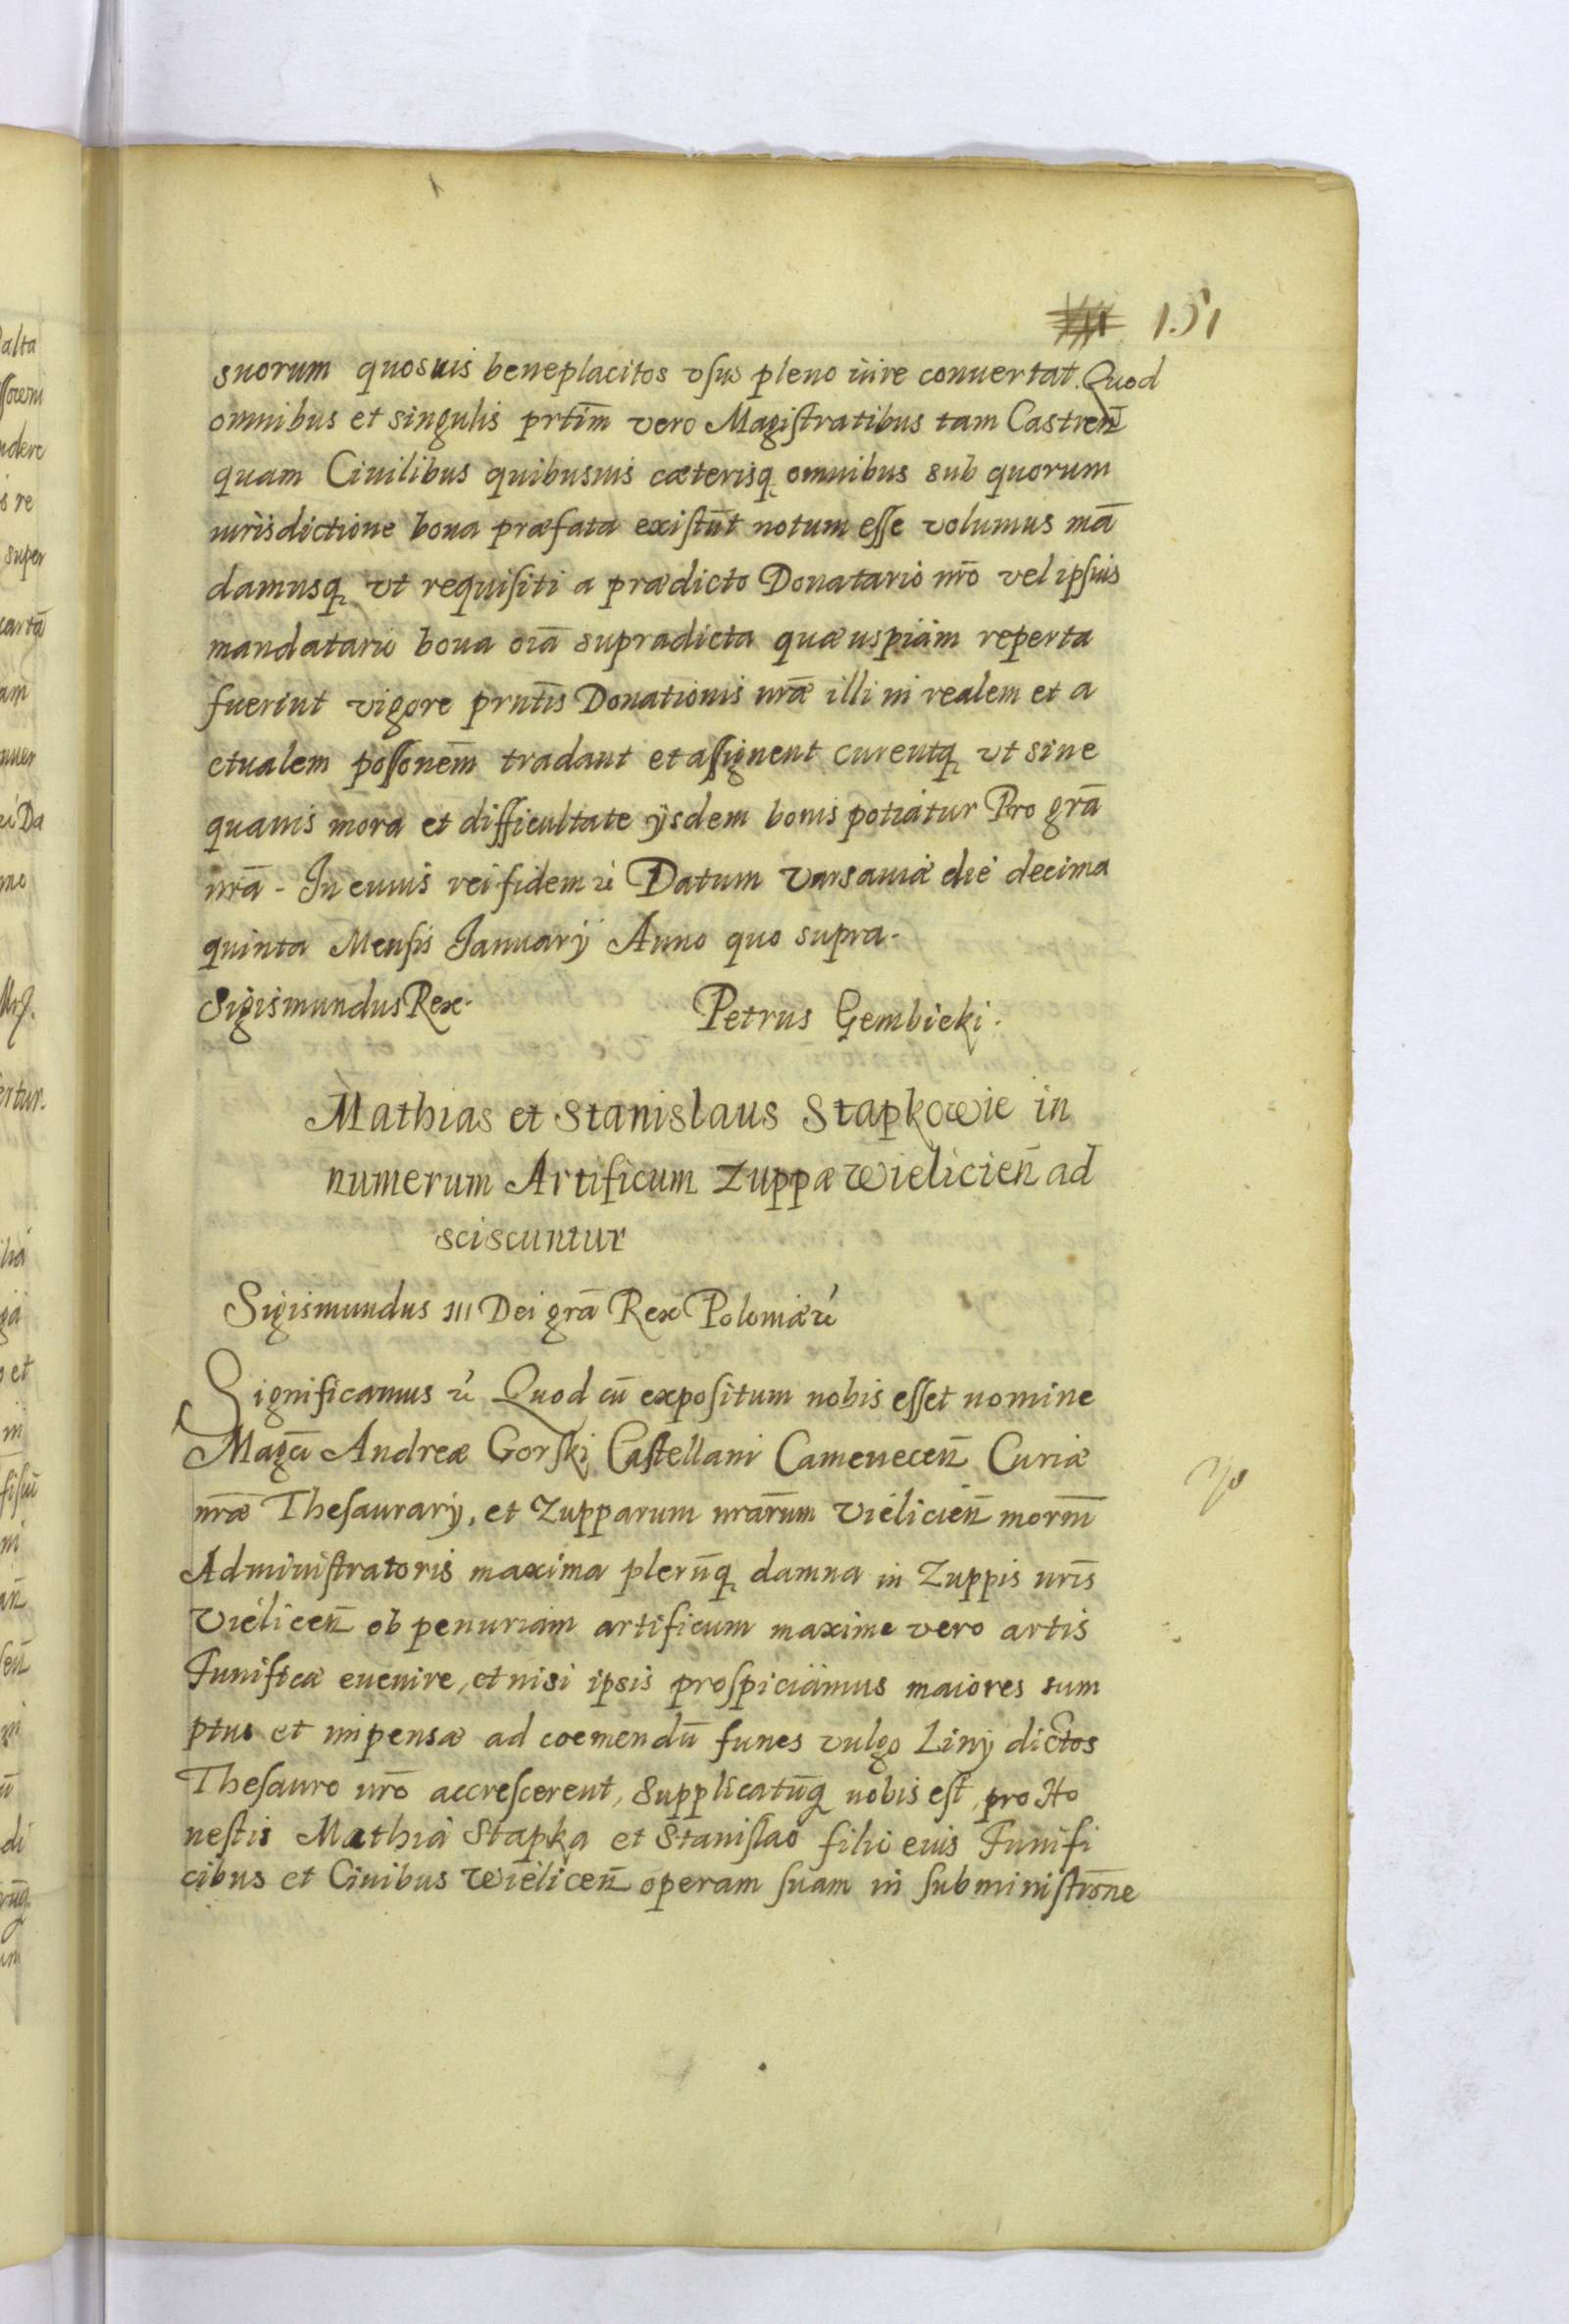 151
suorum quosuis beneplacitos vsus pleno iure conuertat. Quod
omnibus et singulis prtim̄ vero Magistratibus tam Castren̄
quam Ciuilibus quibusuis cæterisq̨ omnibus sub quorum
iurisdictione bona præfata existūt notum esse volumus mā
damusq̨ vt requisiti a prædicto Donatario nr̄o vel ipsius
mandatario bona oīa supradicta quæ uspiam reperta
fuerint vigore prn̄tis Donationis nr̄æ illi in realem et a
ctualem possonem̄ tradant et assignent curentq̨ vt sine
quauis mora et difficultate ÿsdem bonis potiatur Pro grā
nr̄a - In cuius rei fidem ꝛc Datum Varsauiæ die decima
quinta Mensis Januarÿ Anno quo supra.
Sigismundus Rex. Petrus Gembicki.
Mathias et Stanislaus Stapkowie in
numerum Artificum Zuppæ Wielicień ad
sciscuntur
Sigismundus III Dei grā Rex Poloniæ ꝛc
Significamus ꝛc Quod cū expositum nobis esset nomine
Magci Andreæ Gorski Castellani Camenecen̄ Curiæ
nr̄æ Thesaurarÿ, et Zupparum nrar̄um Vielicien̄ morm̄
Administratoris maxima plerūq̨ damna in Zuppis nr̄is
Vielicen̄ ob penuriam artificum maxime vero artis
Funificæ euenire, et nisi ipsis prospiciamus maiores sum
ptus et impensæ ad coemendū funes vulgo Liny dictos
Thesauro nr̄o accrescerent, Supplicatūq̨ nobis est, pro Ho
nestis Mathia Stapka et Stanislao filio eius Funifi
cibus et Ciuibus Wielicen̄ operam suam in subministrōne